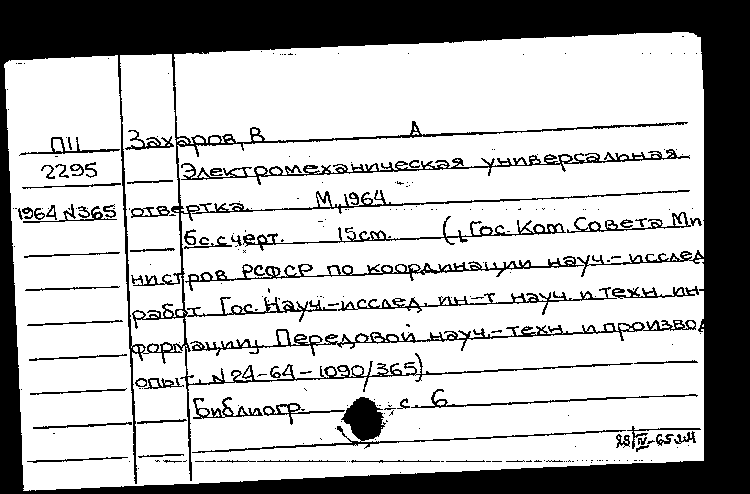 П11 Захаров, В А
2295 Электромеханическая универсальная
1964 N365 отвертка. М, 1964.
6с. с черт. 15см. (Гос. Ком. Совета Ми
нистров РСФСР по координации науч.-исслед
работ. Гос. Науч.-исслед. ин-т науч. и техн. ин-
формации. Передовой науч.-техн. и производ
опыт. N 24-64-1090/365).
Библиогр. с. 6.